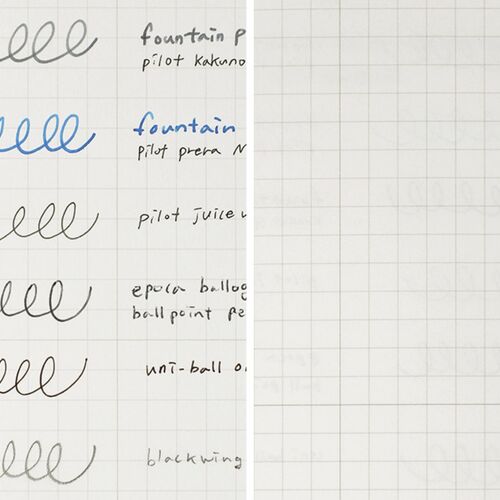 fountain p
pilot kakuno
fountain
pilot prera
pilot juice
epoca ballog
ballpoint pe
uni-ball o
blackwing